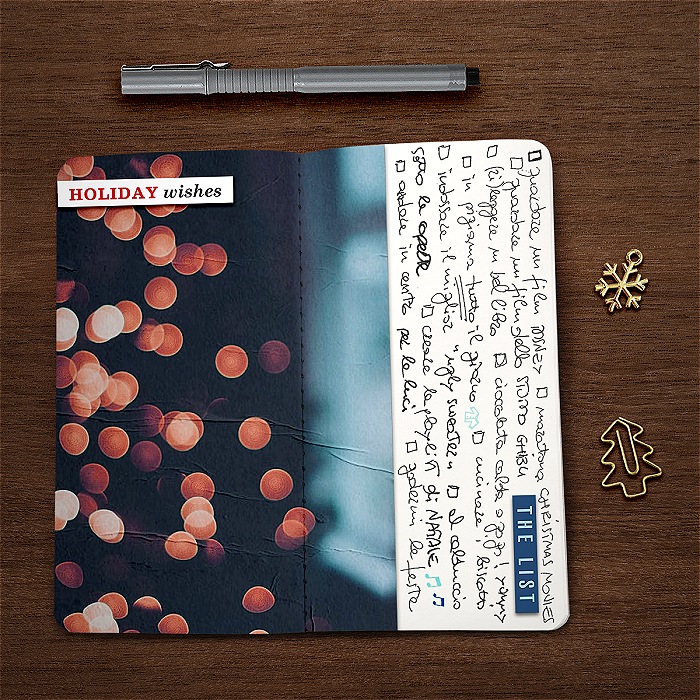 HOLIDAY wishes
□ guardare un film DISNEY □ maratona CHRISTMAS MOVIES
□ guardare un film dello STUDIO GHIBLI
□ (ri)leggere un bel libro □ cioccolata calda e ! yummy
□ in pigiama tutto il giorno □ cucinare i biscotti
□ indossare il miglior "ugly sweater" □ al calduccio
sotto le coperte □ creare la playlist di NATALE
□ andare in centro per le luci □ godermi le feste
THE LIST